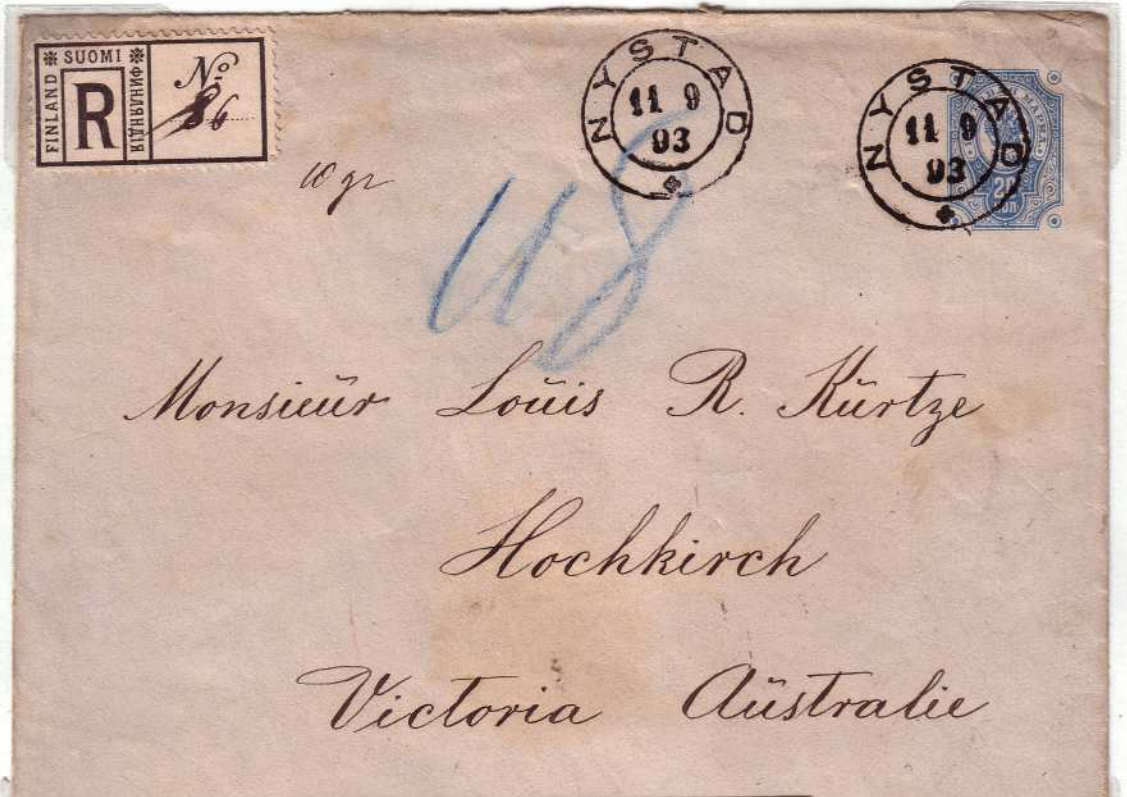 SUOMI
FINLAND
R
ФИНЛЯНДІЯ
No
86
10 gr
NYSTAD
11 9
93
NYSTAD
11 9
93
МАРКА
20
КОП
Monsieŭr Loŭis R. Kŭrtze
Hochkirch
Victoria Aŭstralie